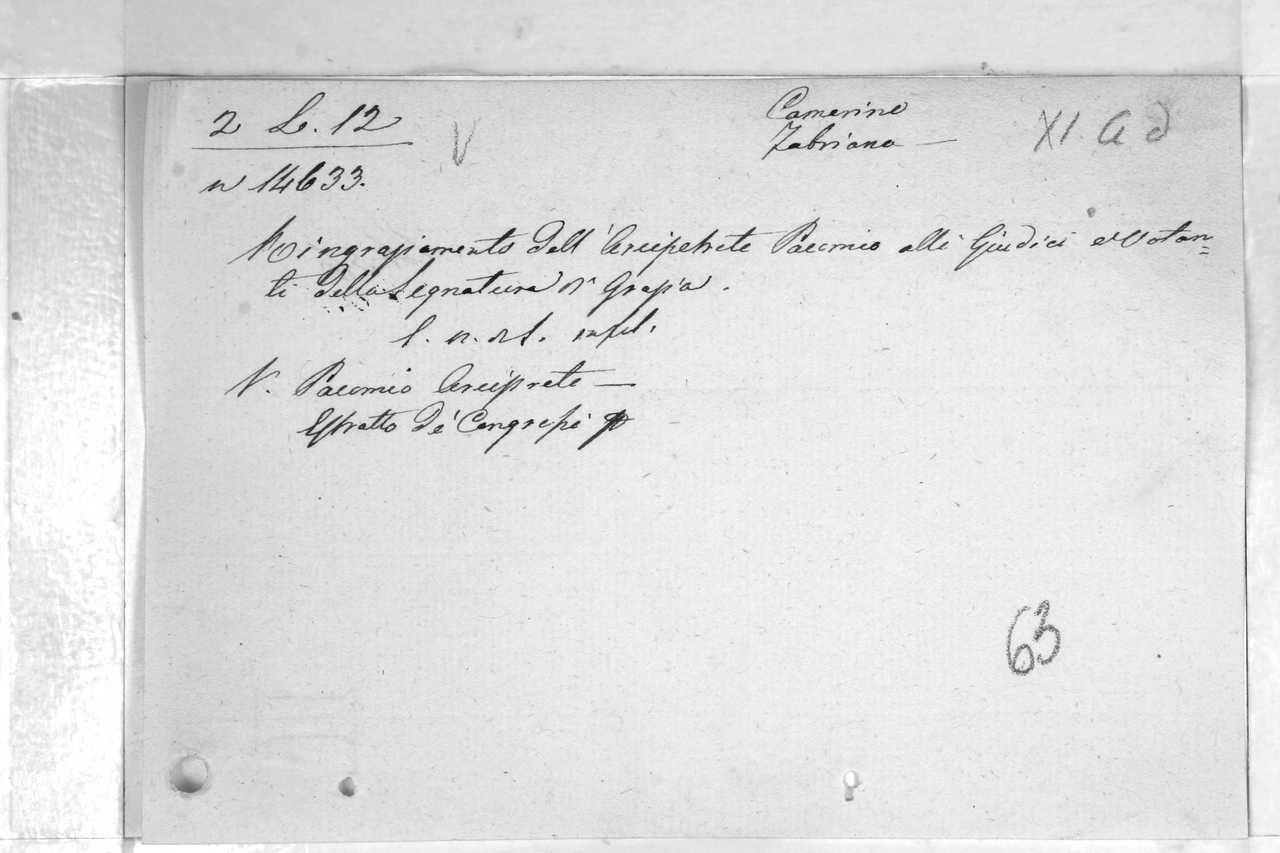 2 L. 12
V
Camerino
Fabriano —
XI. a d
n 14633.
Ringraziamento dell' Arcipetrete Pacomio alli Giudici e Votan=
ti della Segnatura di Grazia.
l. n. d.
V. Pacomio Arciprete —
Estratto de'
63